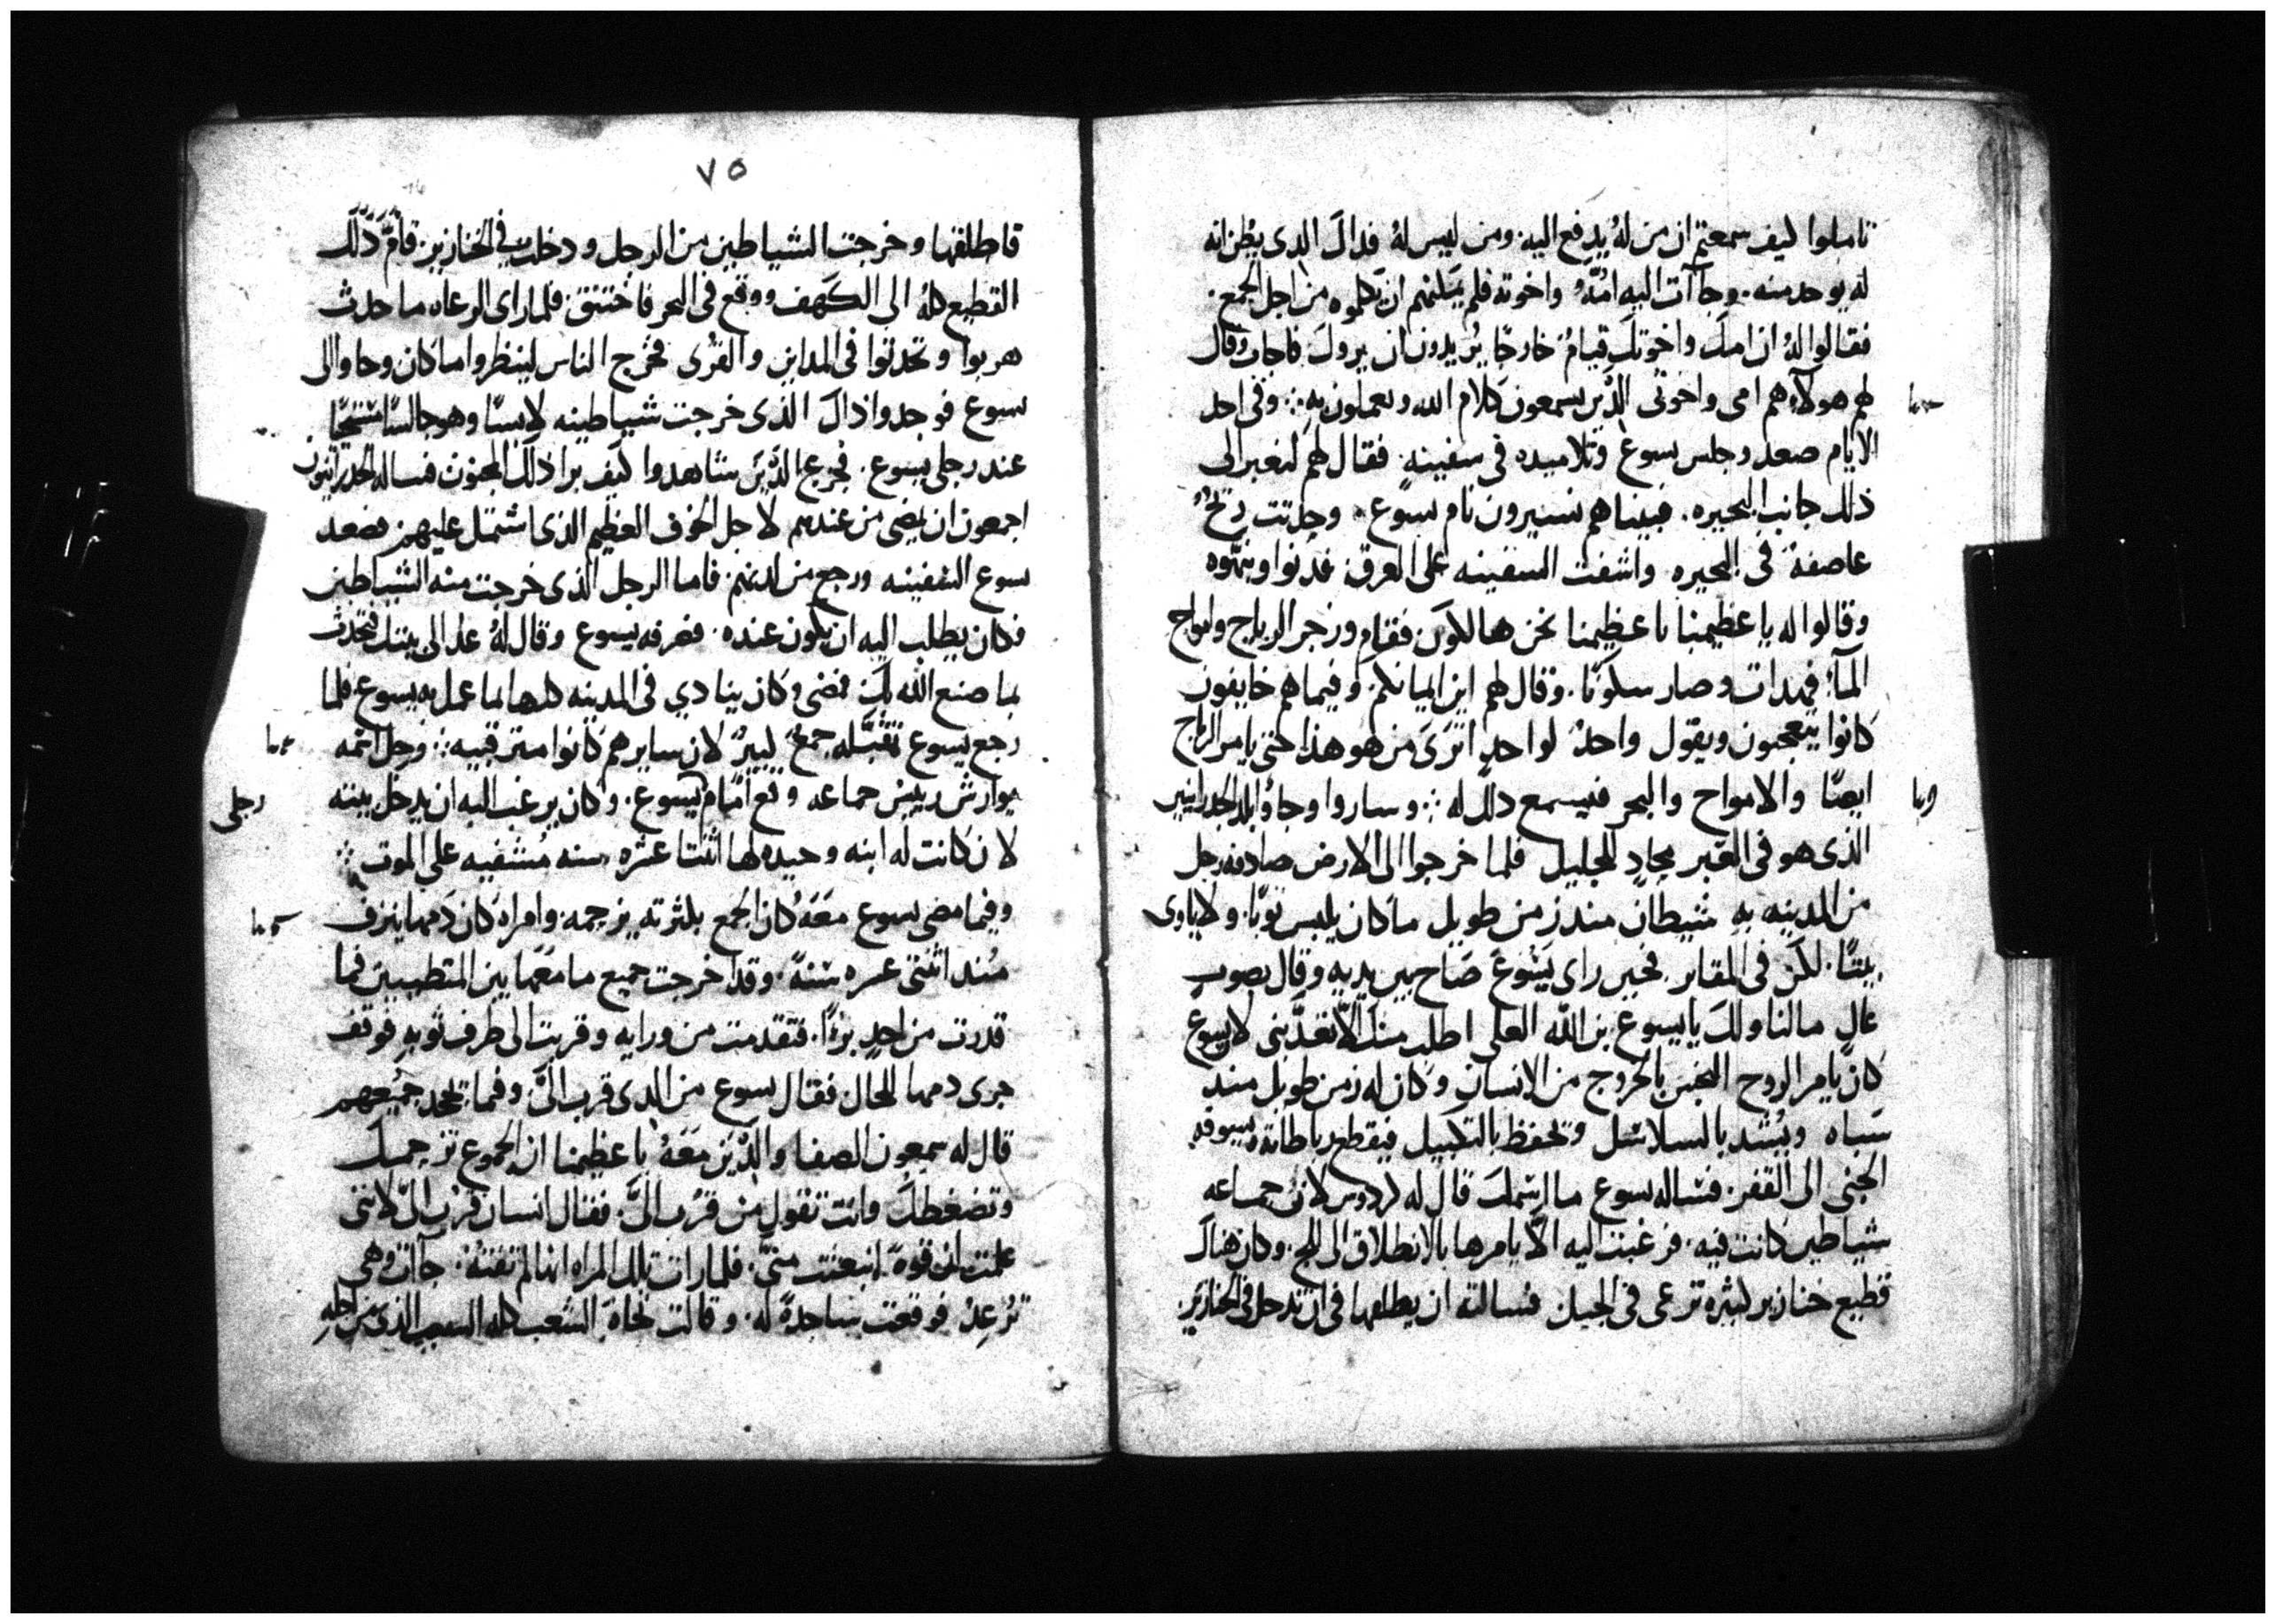 تاملوا كيف سمعتم ان من له يدفع اليه. ومن ليس له فداك الدى يظن انه
له يوخد منه. وجاآت اليه امه واخوته فلم يمكنهم ان يكلموه من اجل الجمع.
فقالوا له ان امك واخوتك قيام خارجًا يريدون ان يروك فاجاب وقال
لهم هولاء هم امى واخوتى الذين يسمعون كلام الله ويعملون به وفى احد
الايام صعد وجلس يسوع وتلاميده فى سفينه. فقال لهم لنعبر الى
ذلك جانب البحيره. فبينما هم يسيرون نام يسوع. وحدتت ريح
عاصفه فى البحيره. واشفت السفينه على الغرق فدنوا ونبهوه
وقالوا له يا عظيمنا يا عظيمنا نحن هالكون فقام وزجر الرياح وامواج
المآء فهدات وصار سكونًا. وقال لهم اين ايمانكم. وفيما هم خايفون
كانوا يتعجبون ويقول واحد لواحد اترى من هو هذا حتى يامر الرياح
ايضًا والامواح والبحر فيسمع دلك له وساروا وجاوا بلد الجدرانيين
الذى هو فى العبر محاد للجليل فلما خرجوا الى الارض صادفه رجل
من المدينه به شيطان مند زمن طويل ما كان يلبس توبًا. ولا ياوى
بيتًا. لكن فى المقابر. فحين راى يسوع صاح بين يديه وقال بصوت
عال ما لنا ولك يا يسوع بن الله العلى اطلب منك الا تعدبنى لان يسوع
كان يامر الروح النجس بالخروج من الانسان وكان له زمن طويل مند
سباه ويشد بالسلاسل وتحفظ بالتكبيل فيقطع رباطاته ويسوقه
الجنى الى القفر. فساله يسوع ما اسمك قال له لان جماعه
شياطين كانت فيه. فرغبت اليه الا يامرها بالانطلاق الى اللج. وكان هناك
قطيع خنازير كثيره ترعى فى الجبل فسالته ان يطلقها فى ان تدحل فى الخنازير.
٧٥
فاطلقها وخرجت الشياطين من الرجل ودخلت فى الخنازير. فام ذلك
القطيع كله الى الكهف ووقع فى البحر فاختنق. فلما راى الرعاه ما حدث
هربوا وتحدثوا فى المداين والقرى فخرج الناس لينظروا ما كان وجاوا الى
يسوع فوجدوا ذاك الذى خرجت شياطينه لابسًا وهو جالسًا
عند رجلى يسوع. فجزع الذين شاهدوا كيف برا ذلك المجنون فساله الجدرانيون
اجمعون ان يمضى من عندهم لاجل الخوف العظيم الذى اشتمل عليهم فصعد
يسوع السفينه ورجع من لدنهم. فاما الرجل الذى خرجت منه الشياطين
فكان يطلب اليه ان يكون عنده. فصرفه يسوع وقال له عد الى بيتك فتحدث
بما صنع الله بك فمضى وكان ينادي فى المدينه كلها بما عمل به يسوع فلما
رجع يسوع تقبله جمع كبير لان سايرهم كانوا مترقبيه وجل اسمه
يوارش رييس جماعه وقع امام يسوع. وكان يرغب اليه ان يدخل بيته
رجلى
لان كانت له ابنه وحيده لها اثنتا عشره سنه مشفيه على الموت
وفيما مضى يسوع معه كان الجمع بكثرته يزحمه. وامراه كان دمها ينزف
مند اثنتى عسره سنة. وقد اخرجت جميع ما معها بين المتطببين فما
قدرت من احد برءًا. فتقدمت من ورايه وقربت الى طرف ثوبه فوقف
جرى دمها للحال فقال يسوع من الدى قرب الى. وفيما يجحد جميعهم
قال له سمعون الصفا والذين معه يا عظيمنا ان الجموع تزحمك
وتضغطك وانت تقول من قرب الى. فقال انسان قرب الى لاننى
علمت ان قوة انبعثت منى. فلما رات تلك المراه انها لم تفته. جاآت وهى
ترعد فوقعت ساجدة له. وقالت تجاه الشعب كله السبب الذى من اجله